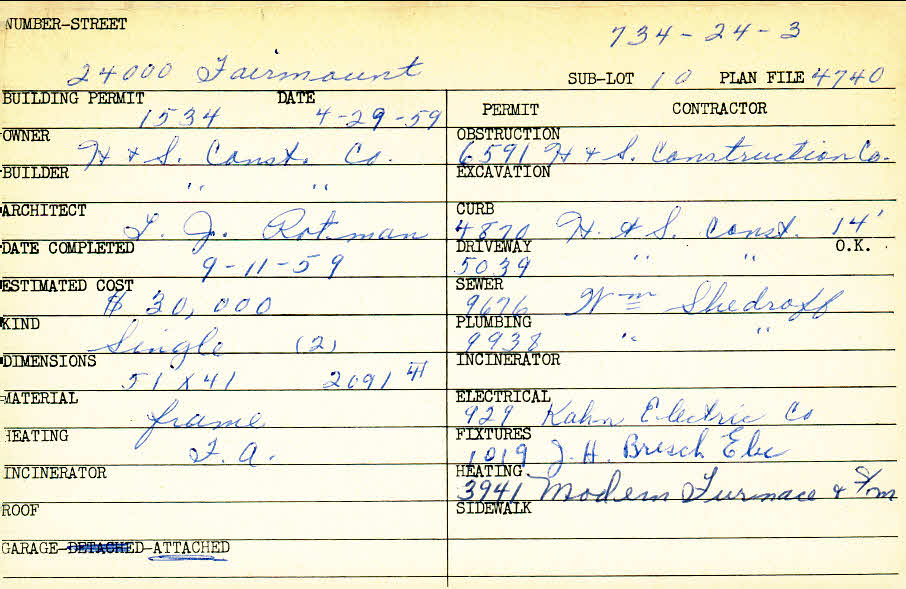 NUMBER-STREET
734-24-3
24000 Fairmount
SUB-LOT 10 PLAN FILE 4740
BUILDING PERMIT DATE
1534 4-29-59
OWNER
H & S. Const. Co.
BUILDER
" "
ARCHITECT
L. J. Rotman
DATE COMPLETED
9-11-59
ESTIMATED COST
$ 30,000
KIND
Single (2)
DIMENSIONS
51 X 41 2091
MATERIAL
frame
HEATING
F. A.
INCINERATOR
ROOF
GARAGE-DETACHED-ATTACHED
PERMIT CONTRACTOR
OBSTRUCTION
6591 H & S. Construction Co.
EXCAVATION
CURB
4870 H. & S. Const. 14'
DRIVEWAY O.K.
5039 " "
SEWER
9676 Wm Shedroff
PLUMBING
9938 " "
INCINERATOR
ELECTRICAL
929 Kahn Electric Co
FIXTURES
1019 J. H. Brisch Elec
HEATING
3941 Modern Furnace &
SIDEWALK